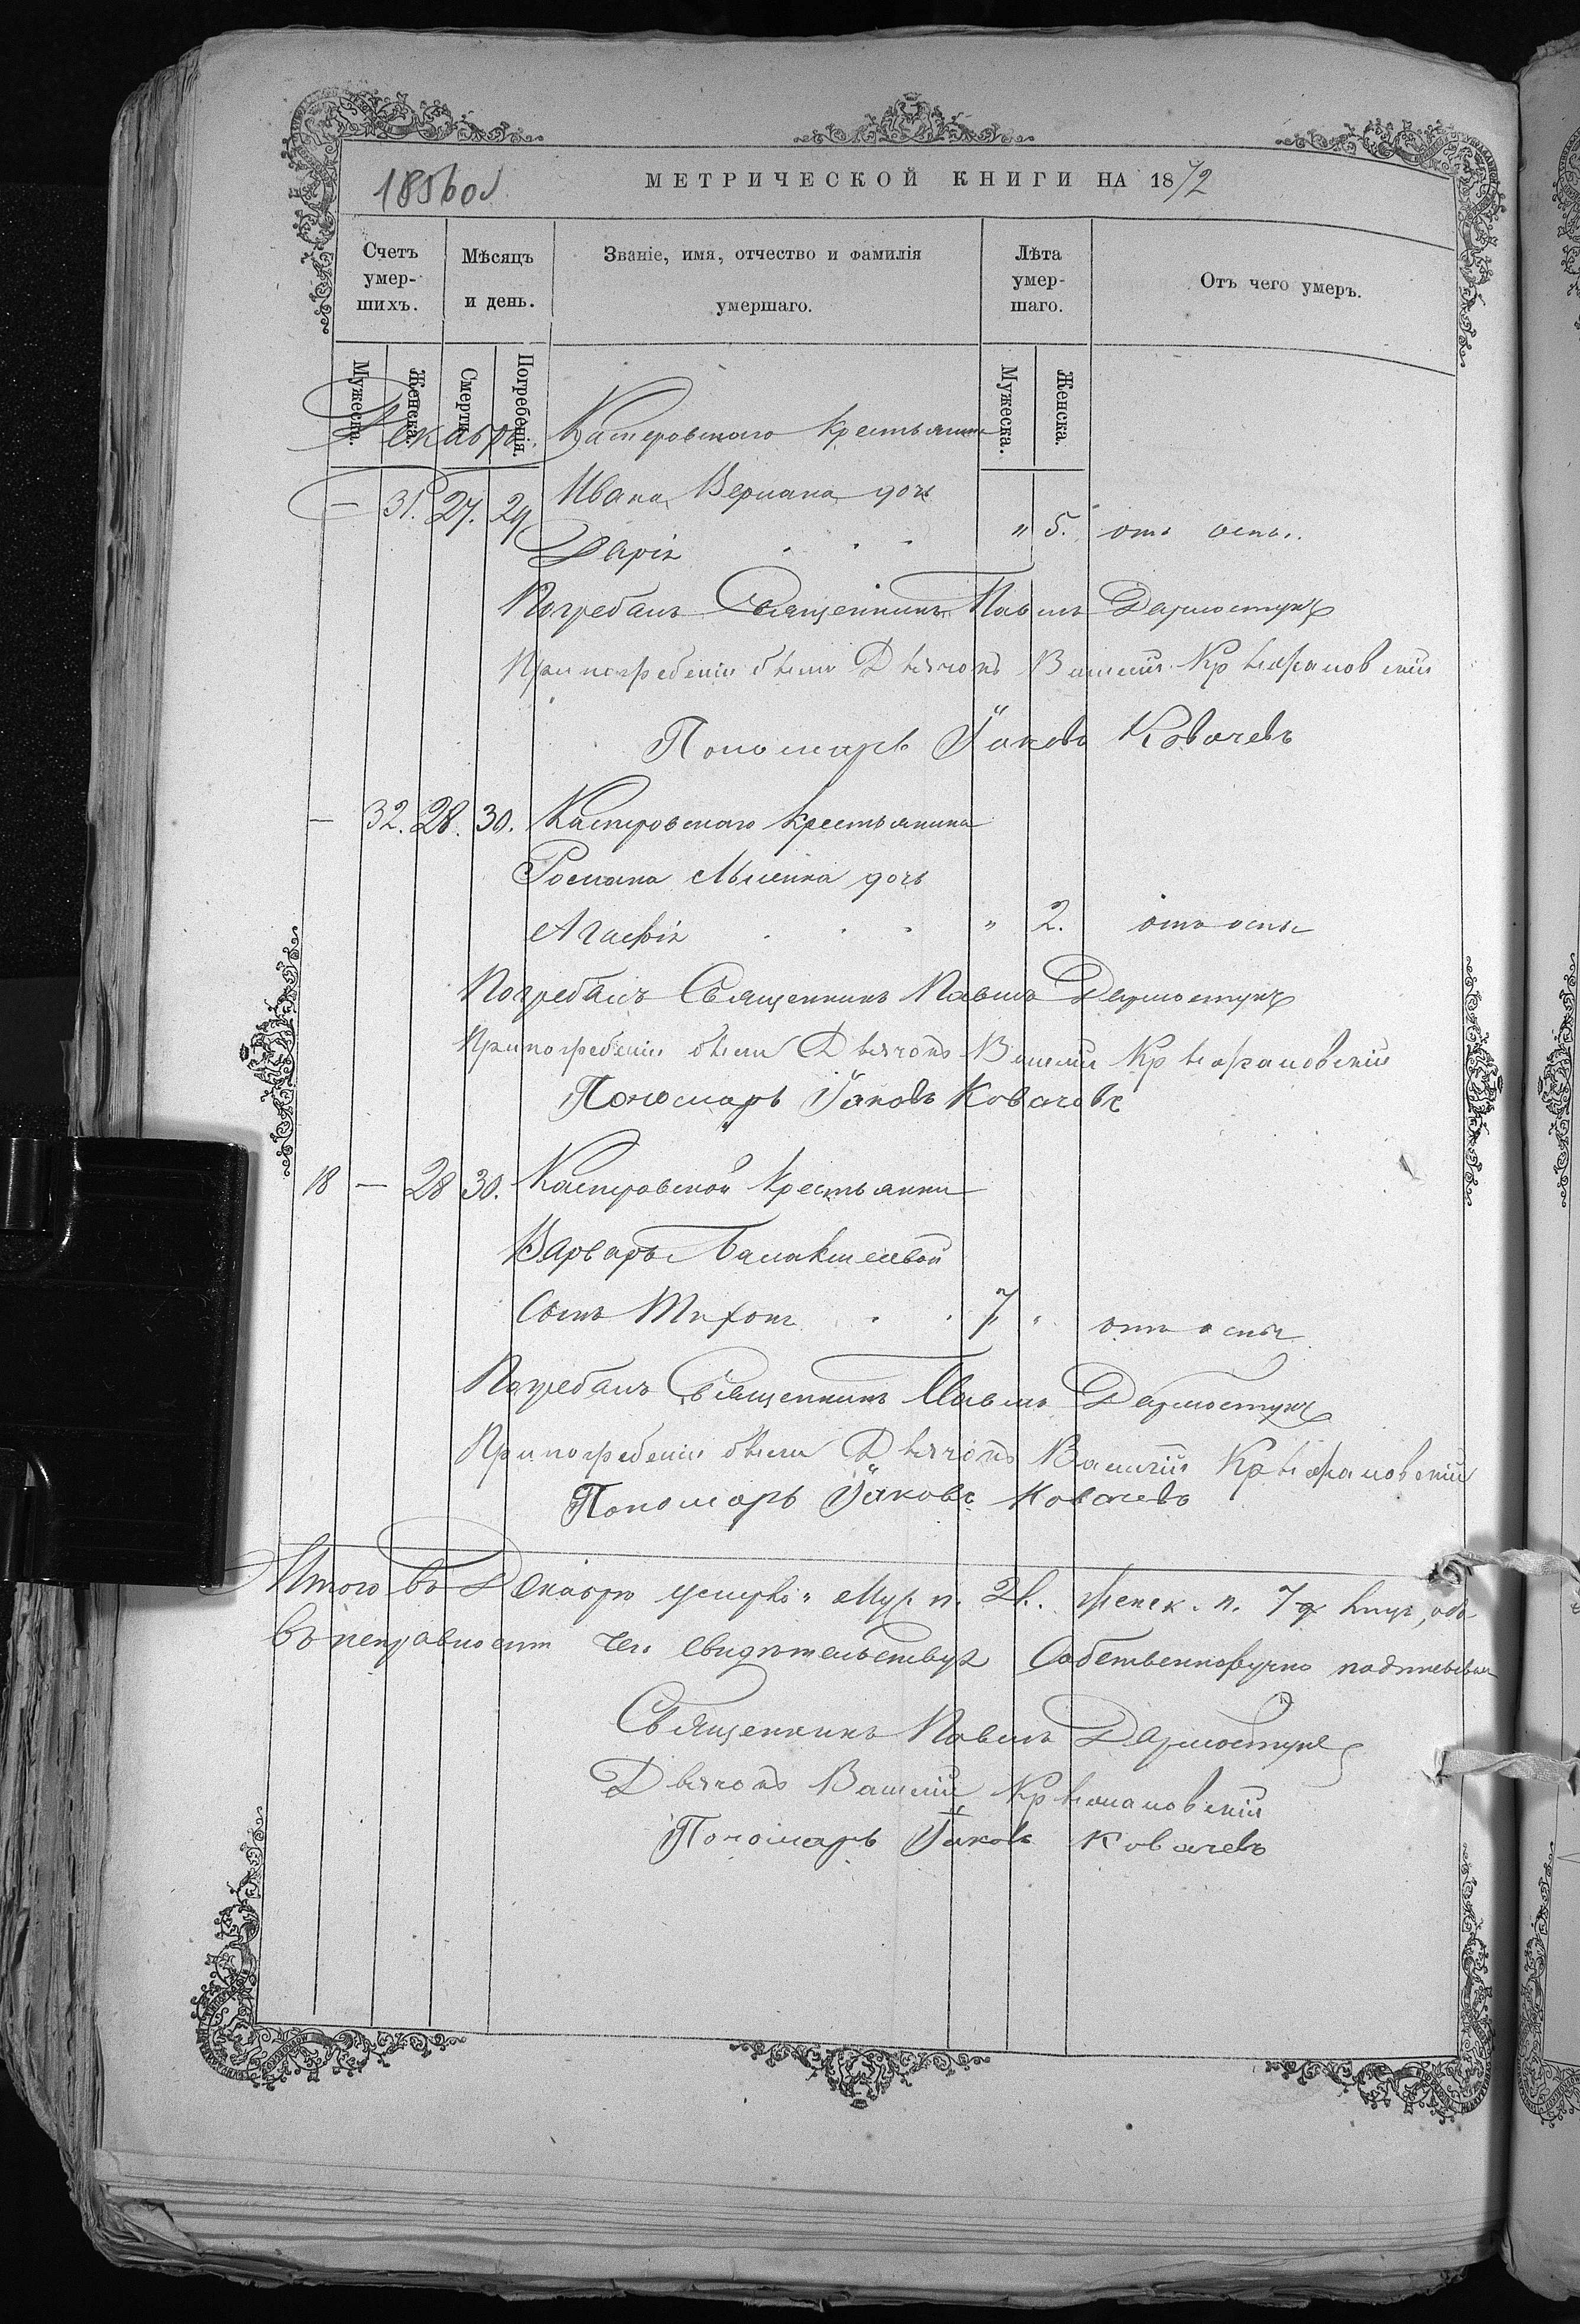 1856об
МЕТРИЧЕСКОЙ КНИГИ НА 1872
Счетъ умер-шихъ.
Мѣсяцъ и день.
Званіе, имя, отчество и фамилія умершаго.
Лѣта умер-шаго.
Отъ чего умеръ.
Мужеска. Женска. Смерти. Погребенія. Мужеска. Женска.
Декабрь Касперовскаго Крестьянина
— 31. 27. 29 Ивана дочь
Дарія . . . " 5. отъ оспы
Погребалъ Священникъ Павелъ
При погребеніи были Дьячокъ Василій
Пономарь Іаковъ Ковачевъ
— 32. 28. 30. Касперовскаго Крестьянина
Романа дочь
Агафія . . . " 2. отъ оспы
Погребалъ Священникъ Павелъ
При погребеніи были Дьячокъ Василій
Пономарь Іаковъ Ковачевъ
18 — 28 30. Касперовской Крестьянки
Варвары
Сынъ Тихонъ . . 7 " отъ оспы
Погребалъ Священникъ Павелъ
При погребеніи были Дьячокъ Василій
Пономарь Іаковъ Ковачевъ
Итого въ Декабрѣ умерло: Муж. п. женск. п.
чемъ свидѣтельствуя Собственноручно
Священникъ Павелъ
Дьячокъ Василій
Пономарь Іаковъ Ковачевъ